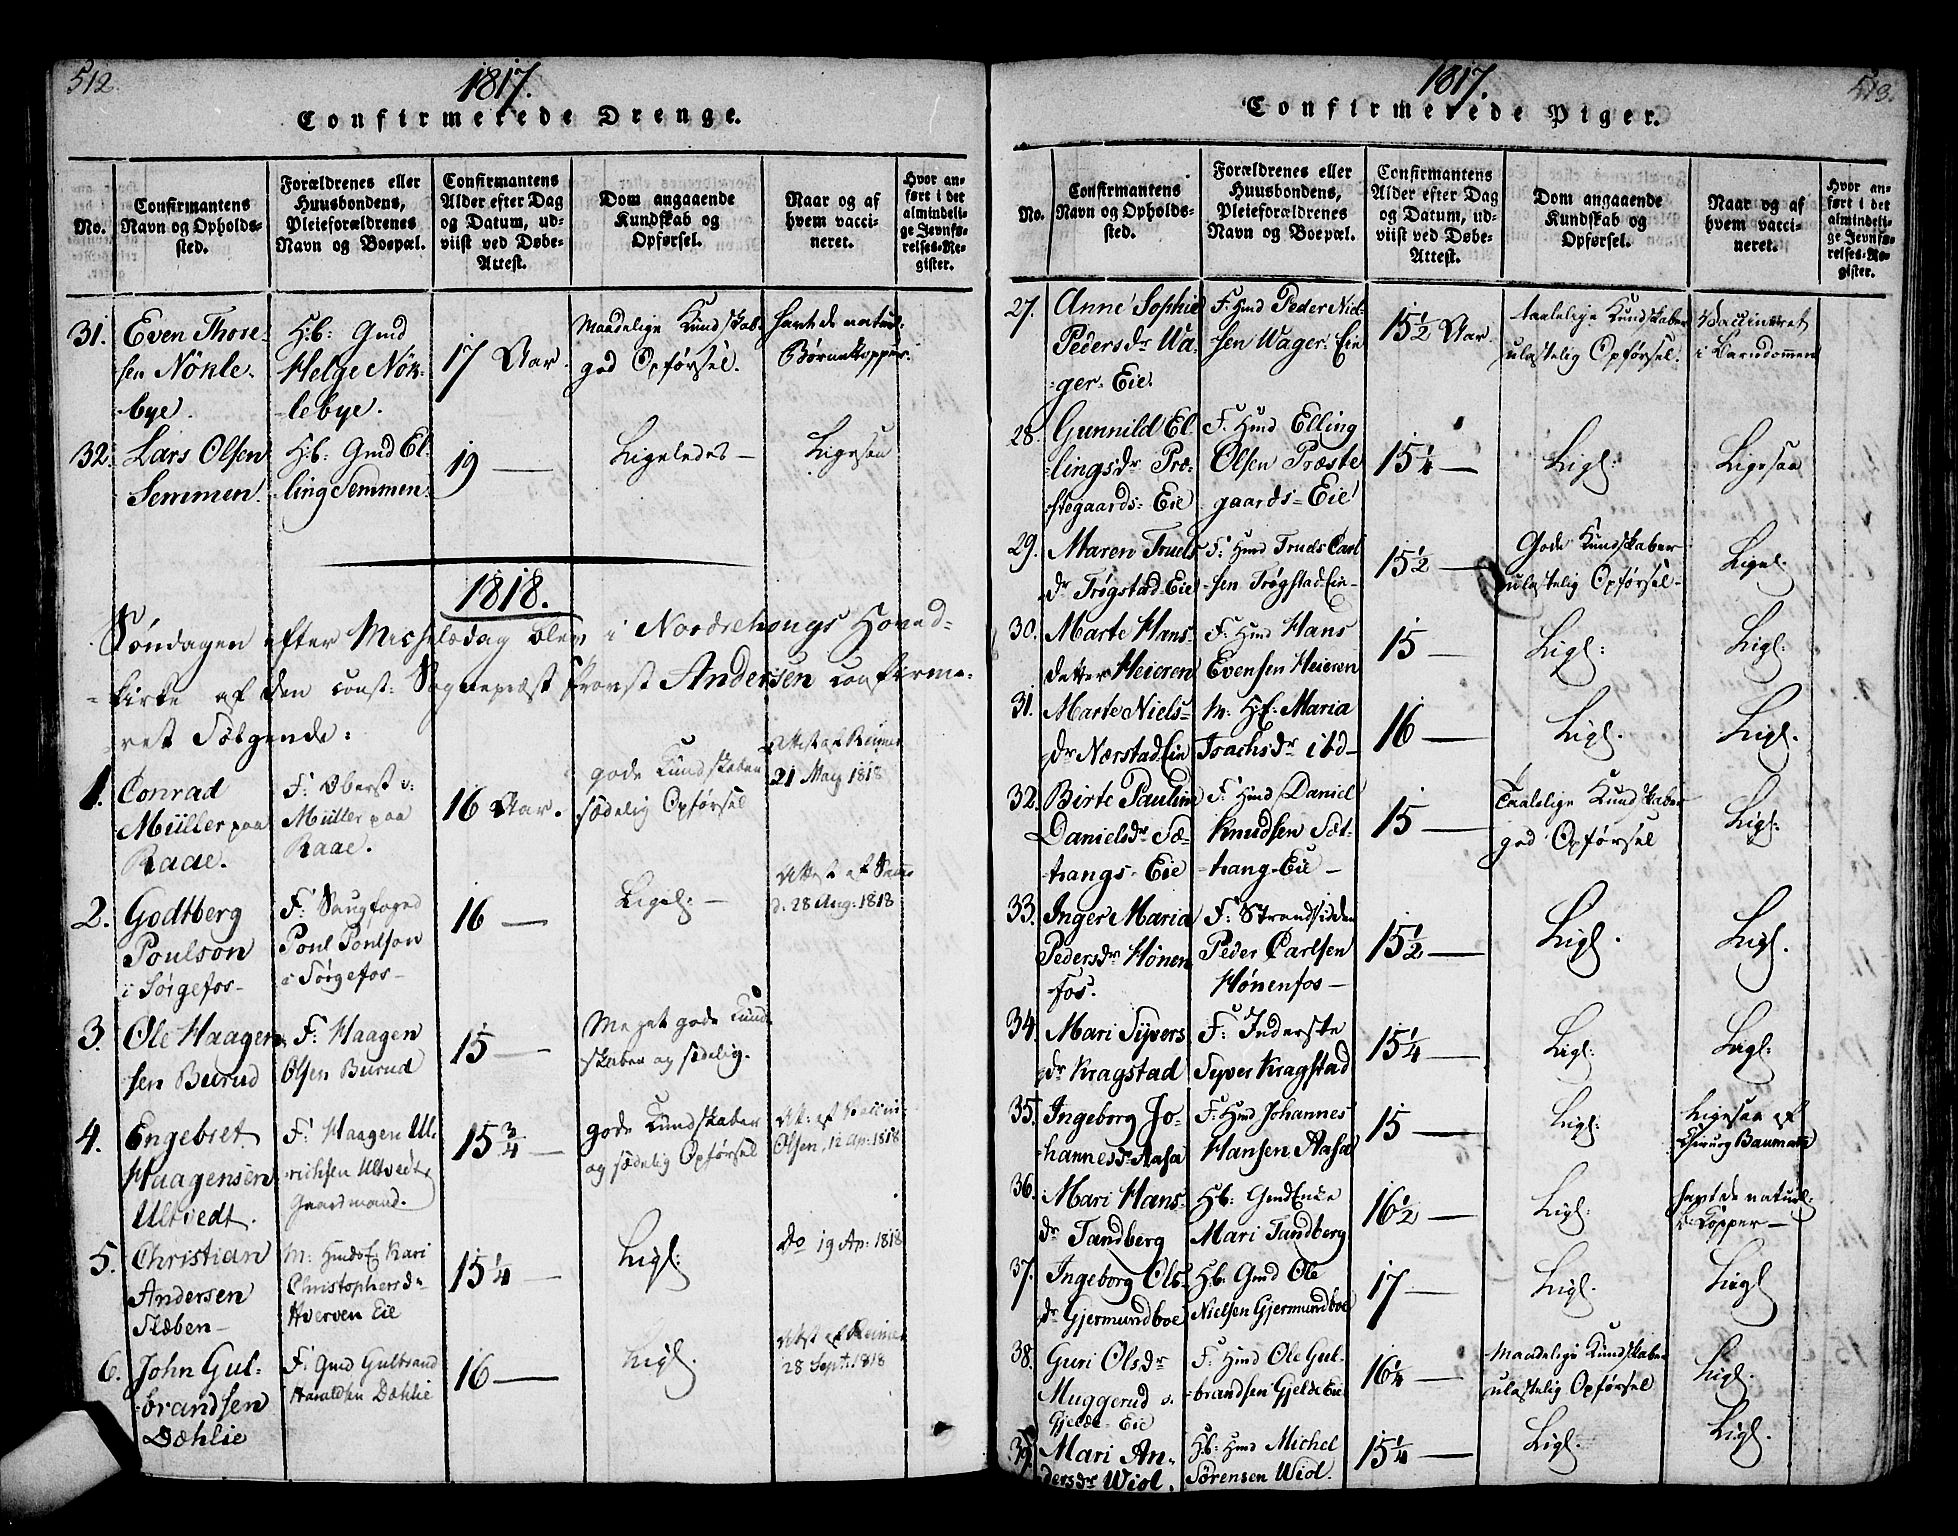 512.
1817.
Confirmerede Drenge.
No.
Confirmantens
Navn og Opholds-
sted.
Forældrenes eller
Huusbondens,
Pleieforældrenes
Navn og Boepæl.
Confirmantens
Alder efter Dag
og Datum, ud-
viist ved Døbe-
Attest.
Dom angaaende
Kundskab og
Opførsel.
Naar og af
hvem vacci-
neret.
Hvor an-
ført i det
almindeli-
ge Jevnfø-
relses-Re-
gister.
31.
Even Thore-
sen Nönle-
bye.
H:b: Gmd
Helge Nön-
lebye.
17 Aar.
Maadelige Kundskab.
god Opførsel.
havt de naturl:
Børnekopper.
32.
Lars Olsen
Semmen.
H:b: Gmd El-
ling Semmen.
19 —
Ligeledes —
Ligesaa
1818.
Søndagen efter Michelsdag blev i Nordrehougs Hoved-
kirke af den const: Sognepræst Provst Andersen confirme-
ret Følgende:
1.
Conrad
Müller paa
Raae.
F: Oberst v:
Müller paa
Raae.
16 Aar.
gode Kundskaber
sædelig Opførsel
Attest af Reimer
21 May 1818
2.
Godtberg
Poulson
i Sørgefos-
F: Saugfoged
Poul Poulson
i Sørgefos-
16 —
Ligel: —
Attest af
d. 28 Aug: 1818
3.
Ole Haagen-
sen Burud
F: Haagen
Olsen Burud
15 —
Meget gode Kund-
skaber og sædelig.
4.
Engebret
Haagensen
Ultvedt.
F: Haagen Ul-
richsen Ultvedt
Gaardmand.
15 3/4 —
gode Kundskaber
og sædelig Opførsel
At: af Vaccin:
Olsen, 12 Ap: 1818
5.
Christian
Andersen
Slæben-
M: Hmds E. Kari
Christophersd-
Hverven Eie
15 1/4 —
Ligl:
Do 19 Ap: 1818
6.
John Gul-
brandsen
Dæhlie
F: Gmd Gulbrand
Haraldsen Dæhlie
16 —
Ligl.
Attst af Reimer
28 Sept: 1818
513.
1817.
Confirmerede Piger.
No.
Confirmantens
Navn og Opholds-
sted.
Forældrenes eller
Huusbondens,
Pleieforældrenes
Navn og Boepæl.
Confirmantens
Alder efter Dag
og Datum, ud-
viist ved Døbe-
Attest.
Dom angaaende
Kundskab og
Opførsel.
Naar og af
hvem vacci-
neret.
Hvor an-
ført i det
almindeli-
ge Jevnfø-
relses-Re-
gister.
27.
Anne Sophie
Pedersdr Wa-
ger- Eie.
F: Hmd Peder Niel-
sen Wager: Eie
15 1/2 Aar
taalelige Kundskaber
ulastelig Opførsel.
Vaccineret
i Barndommen
28.
Gunnild El-
lingsdr Præ-
stegaards- Eie
F. Hmd Elling
Olsen Præste
gaards- Eie
15 1/4 —
Ligl:
Ligesaa
29.
Maren Truls
dr Trøgstad-Eie
F: Hmd Truls Carl
sen Trøgstad-Eie-
15 1/2 —
Gode Kundskaber
ulastelig Opførsel-
Ligel.
30.
Marte Hans-
datter Heieren
F: Hmd Hans
Evensen Heieren
15 —
Ligl:
Ligl:
31.
Marte Niels-
dr Nærstad-Eie
M: H.E. Maria
Isachsdr ibd-
16 —
Ligl.
Ligl.
32.
Birte Pauline
Danielsdr Sæ-
trangs- Eie
F: Hmd Daniel
Knudsen Sæt-
trang-Eie —
15 —
Taalelige Kundskaber
god Opførsel
Ligl:
33.
Inger Maria
Pedersdr Hönen
fos.
F: Strandsidden
Peder Carlsen
Hönenfos —
15 1/2 —
Ligl.
Ligl.
34.
Mari Syvers
dr Kragstad
F: Inderste
Syver Kragstad
15 1/4 —
Ligl:
Ligl:
35.
Ingeborg Jo-
hannesdr Aasa
F: Hmd Johannes
Hansen Aasa
15 —
Ligl:
Ligesaa af
Chirurg Baumann
36.
Mari Hans-
dr Tandberg
Hb: Gmd Enke
Mari Tandberg
16 1/2 —
Ligl:
havt de naturl:
B:Kopper —
37.
Ingeborg Ols-
dr Gjermundboe
Hb: Gmd Ole
Nielsen Gjermundboe
17 —
Ligl.
Ligl
38.
Guri Olsdr
Muggerud v.
Gjelde- Eie
F: Hmd Ole Gul-
brandsen Gjelde Eie
16 1/4 —
Maadelige Kundskaber
ulastelig Opførsel
Ligl.
39.
Mari An-
dersdr Wiol.
Hb: Hmd Michel
Sörensen Wiol.
15 1/4 —
Ligl.
Ligl.